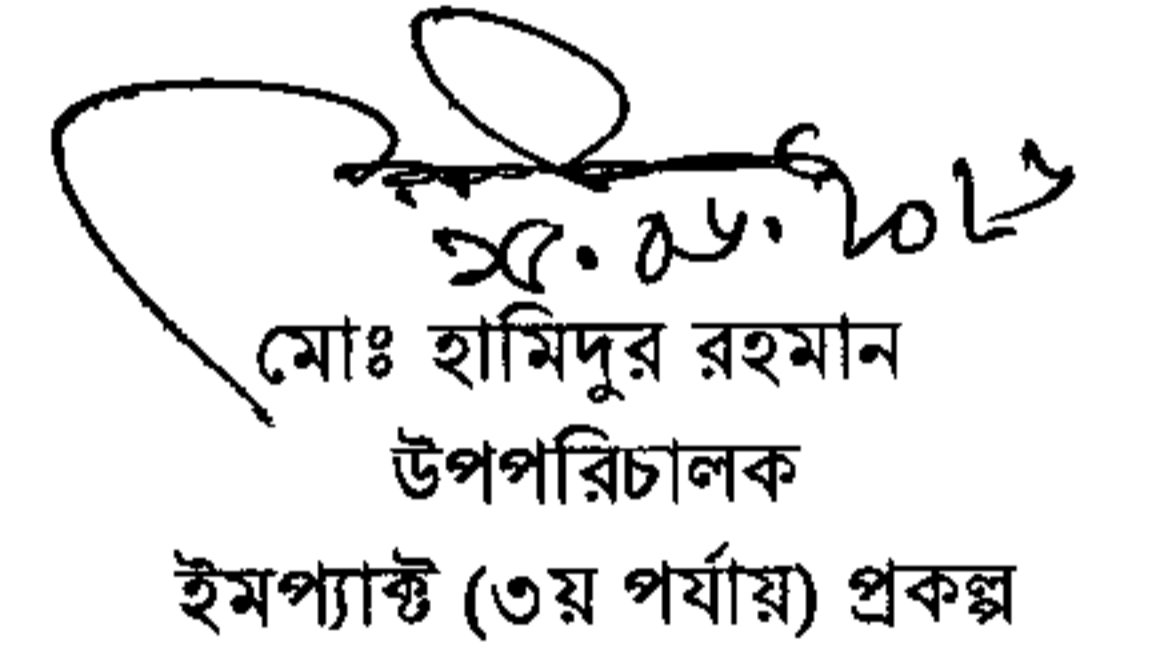 মোঃ হামিদুর রহমান
উপপরিচালক
ইমপ্যাক্ট (৩য় পর্যায়) প্রকল্প